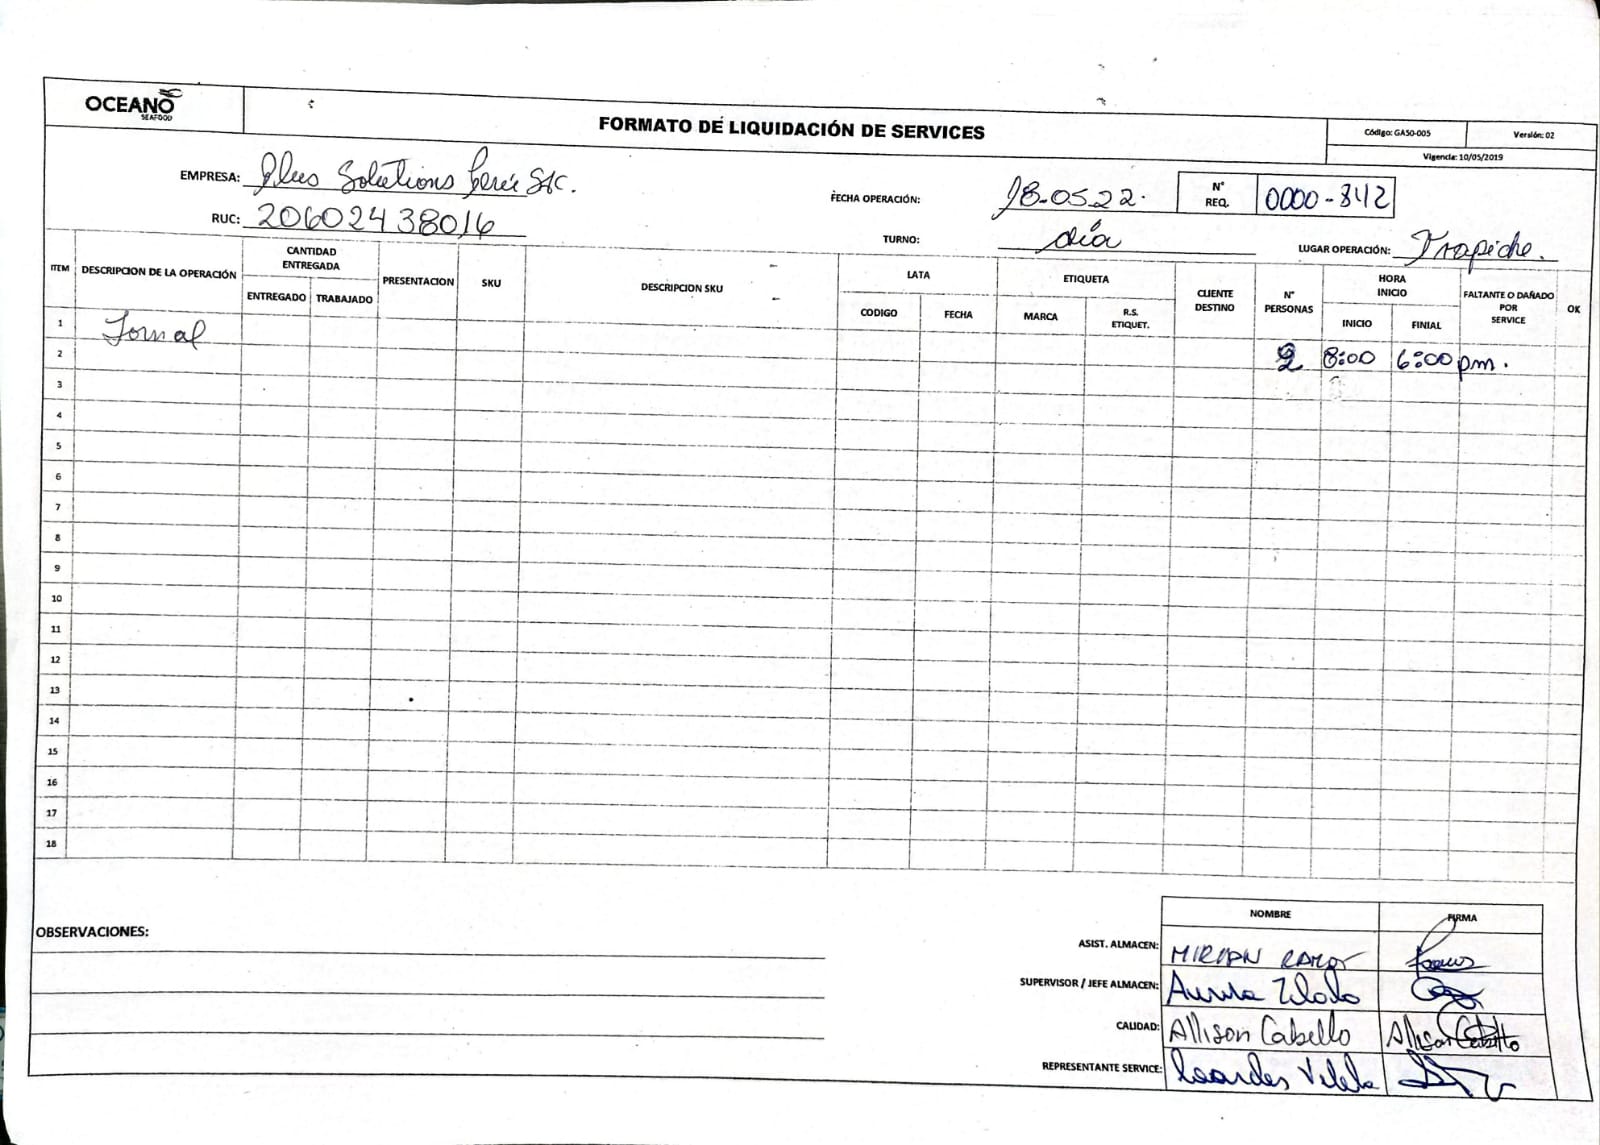 OCEANO
SEAFOOD
FORMATO DE LIQUIDACIÓN DE SERVICES
Código: GA50-005
Versión: 02
Vigencia: 10/05/2019
EMPRESA: Plus Solutions Perú SAC.
FECHA OPERACIÓN: 18-05-22.
N° REQ. 0000-342
RUC: 20602438016
TURNO: día
LUGAR OPERACIÓN: Trapiche.
ITEM DESCRIPCION DE LA OPERACIÓN CANTIDAD ENTREGADA PRESENTACION SKU DESCRIPCION SKU LATA ETIQUETA CLIENTE DESTINO N° PERSONAS HORA INICIO FALTANTE O DAÑADO POR SERVICE OK
ENTREGADO TRABAJADO CODIGO FECHA MARCA R.S. ETIQUET. INICIO FINIAL
1 Jornal 2 8:00 6:00 pm.
2
3
4
5
6
7
8
9
10
11
12
13
14
15
16
17
18
OBSERVACIONES:
NOMBRE FIRMA
ASIST. ALMACEN: MIRIAN RAMOS
SUPERVISOR / JEFE ALMACEN:
CALIDAD: Allison Cabello Allison Cabello
REPRESENTANTE SERVICE: Lourdes Vilela